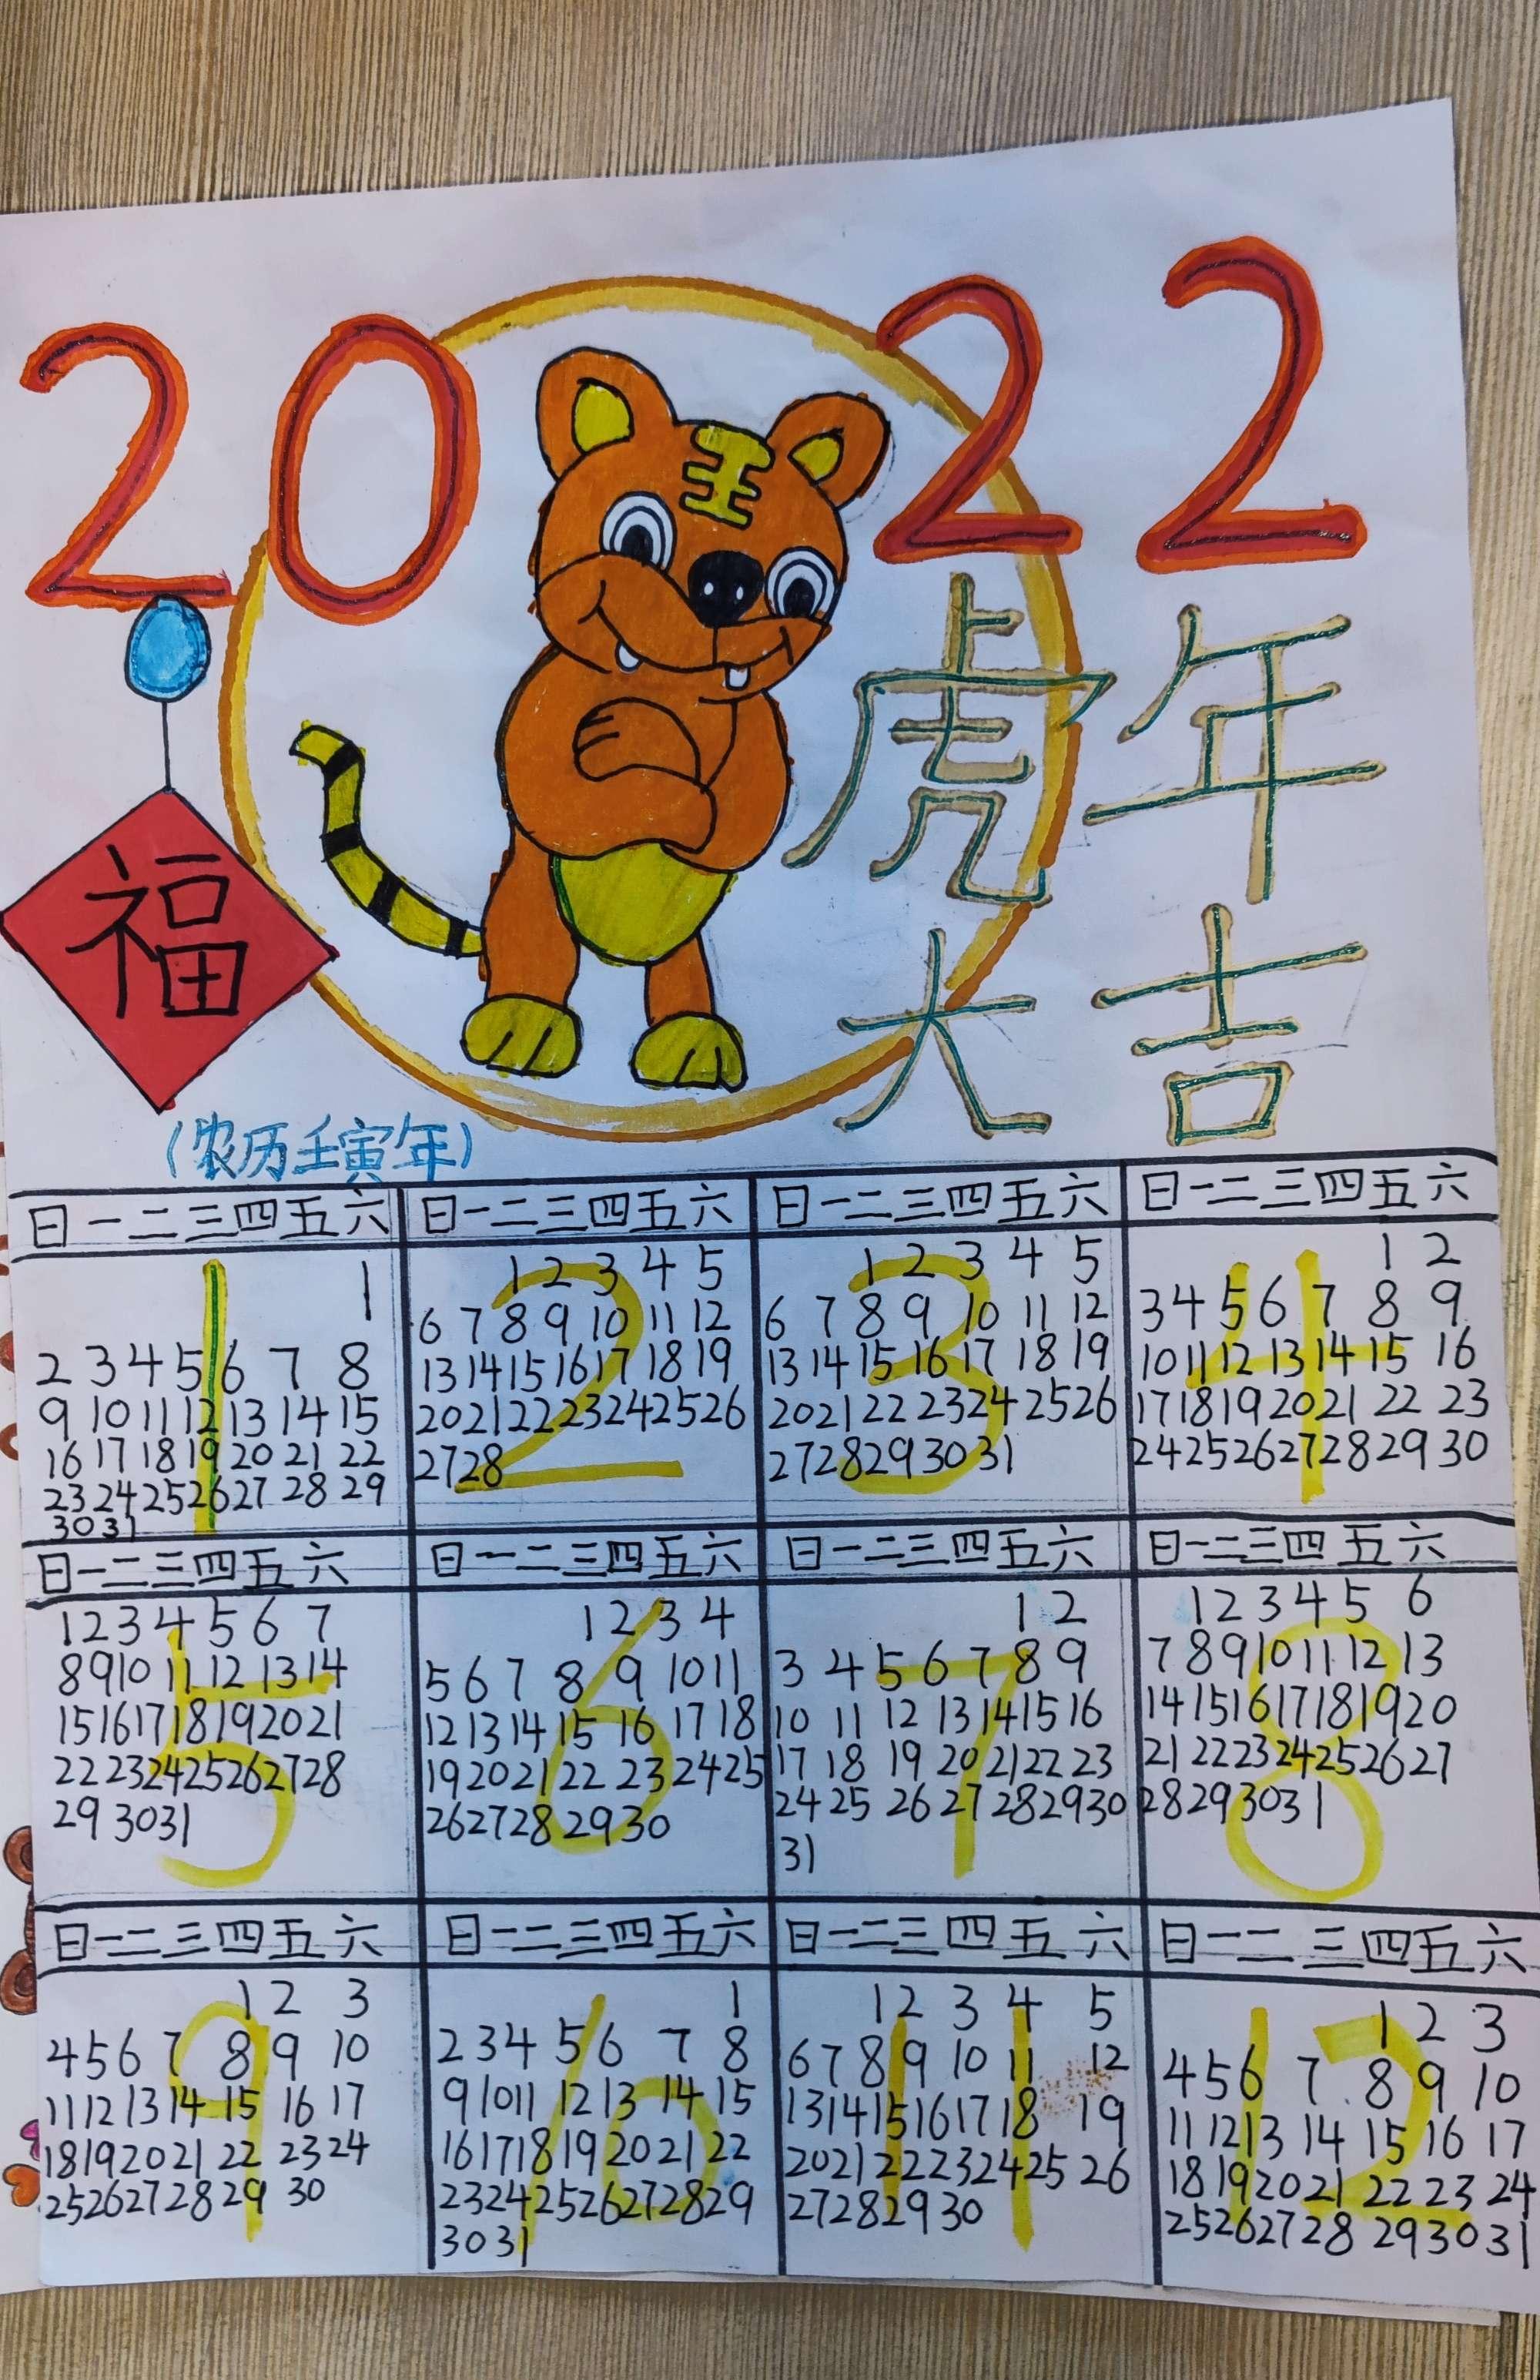 2022
王
虎年
大吉
福
(农历壬寅年)
日一二三四五六
1
1
2 3 4 5 6 7 8
9 10 11 12 13 14 15
16 17 18 19 20 21 22
23 24 25 26 27 28 29
30 31
日一二三四五六
2
1 2 3 4 5
6 7 8 9 10 11 12
13 14 15 16 17 18 19
20 21 22 23 24 25 26
27 28
日一二三四五六
3
1 2 3 4 5
6 7 8 9 10 11 12
13 14 15 16 17 18 19
20 21 22 23 24 25 26
27 28 29 30 31
日一二三四五六
4
1 2
3 4 5 6 7 8 9
10 11 12 13 14 15 16
17 18 19 20 21 22 23
24 25 26 27 28 29 30
日一二三四五六
5
1 2 3 4 5 6 7
8 9 10 11 12 13 14
15 16 17 18 19 20 21
22 23 24 25 26 27 28
29 30 31
日一二三四五六
6
1 2 3 4
5 6 7 8 9 10 11
12 13 14 15 16 17 18
19 20 21 22 23 24 25
26 27 28 29 30
日一二三四五六
7
1 2
3 4 5 6 7 8 9
10 11 12 13 14 15 16
17 18 19 20 21 22 23
24 25 26 27 28 29 30
31
日一二三四五六
8
1 2 3 4 5 6
7 8 9 10 11 12 13
14 15 16 17 18 19 20
21 22 23 24 25 26 27
28 29 30 31
日一二三四五六
9
1 2 3
4 5 6 7 8 9 10
11 12 13 14 15 16 17
18 19 20 21 22 23 24
25 26 27 28 29 30
日一二三四五六
10
1
2 3 4 5 6 7 8
9 10 11 12 13 14 15
16 17 18 19 20 21 22
23 24 25 26 27 28 29
30 31
日一二三四五六
11
1 2 3 4 5
6 7 8 9 10 11 12
13 14 15 16 17 18 19
20 21 22 23 24 25 26
27 28 29 30
日一二三四五六
12
1 2 3
4 5 6 7 8 9 10
11 12 13 14 15 16 17
18 19 20 21 22 23 24
25 26 27 28 29 30 31